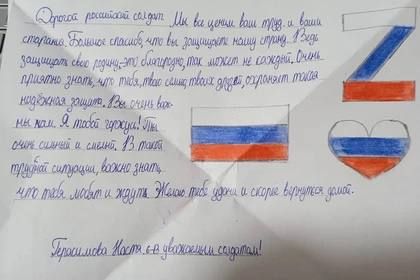 Дорогой российский солдат. Мы все ценим ваш труд и ваши
старания. Большое спасибо, что вы защищаете нашу страну. Ведь
защищать свою родину-это благородно, так может не каждый. Очень
приятно знать, что тебя, твою семью, твоих друзей, охраняет такая
надёжная защита. Вы очень важ-
ны нам. Я тобой горжусь! Ты
очень сильный и смелый. В такой
трудной ситуации, важно знать
что тебя любят и ждут. Желаю тебе удачи и скорее вернуться домой.
Герасимова Настя 6-В уважаемым солдатам!
Z